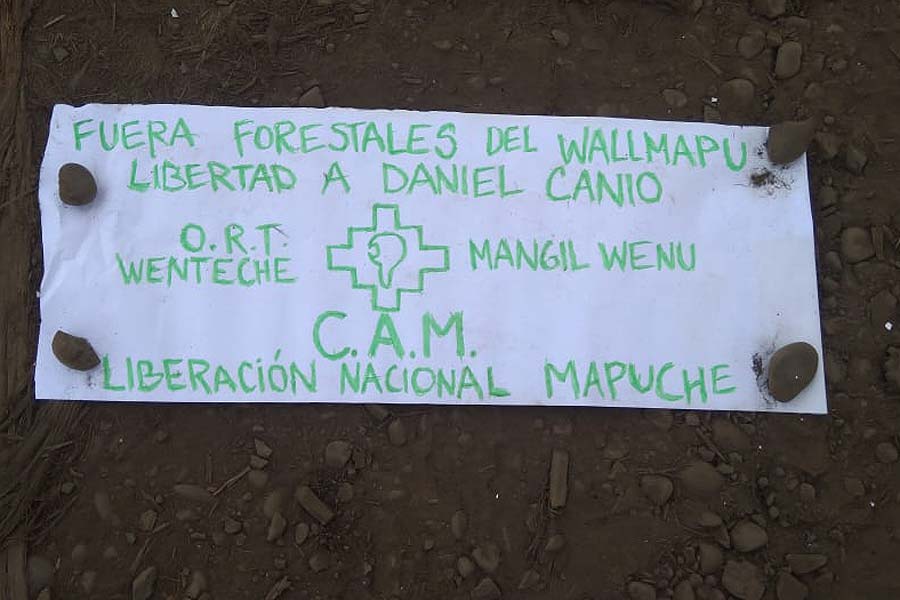 FUERA FORESTALES DEL WALLMAPU
LIBERTAD A DANIEL CANIO
O.R.T.
WENTECHE
MANGIL WENU
C.A.M.
LIBERACIÓN NACIONAL MAPUCHE